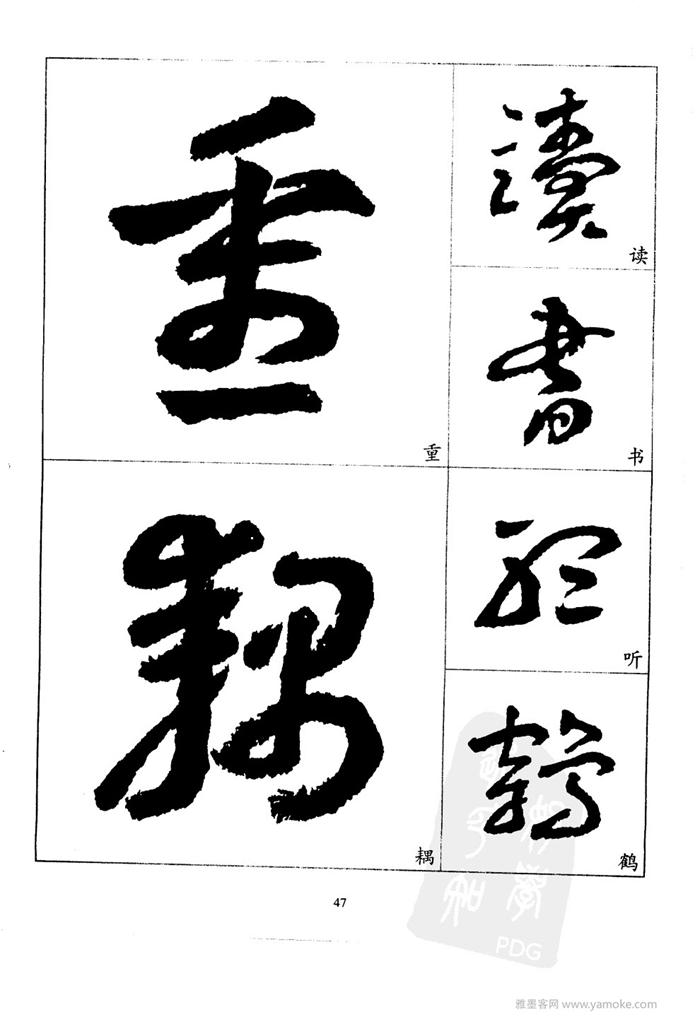 重
重
耦
耦
讀
读
書
书
聽
听
鶴
鹤
47
PDG
雅墨客网 www.yamoke.com